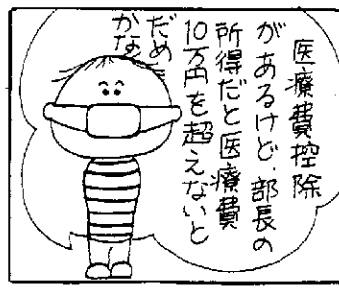 医療費控除
があるけど、部長の
所得だと医療費
10万円を超えないと
だめ
かな